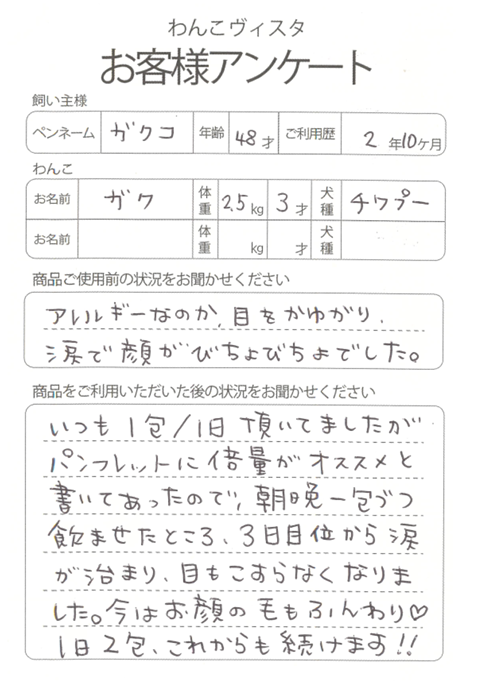 わんこヴィスタ
お客様アンケート
飼い主様
ペンネーム ガクコ 年齢 48才 ご利用歴 2年10ケ月
わんこ
お名前 ガク 体重 2.5kg 3才 犬種 チワプー
お名前 体重 kg 才 犬種
商品ご使用前の状況をお聞かせください
アレルギーなのか、目をかゆがり、
涙で顔がびちょびちょでした。
商品をご利用いただいた後の状況をお聞かせください
いつも1包/1日 頂いてましたが
パンフレットに倍量がオススメと
書いてあったので、朝晩一包づつ
飲ませたところ、3日目位から涙
が治まり、目もこすらなくなりま
した。今はお顔の毛もふんわり♡
1日2包、これからも続けます!!